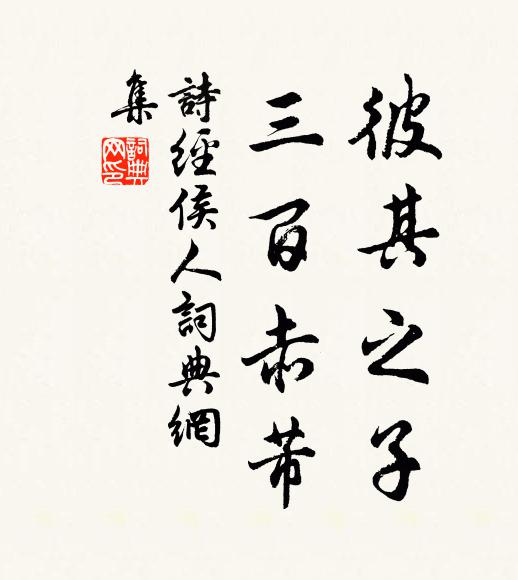 彼其之子
三百赤芾
詩經侯人詞典網
集
詞典
网印